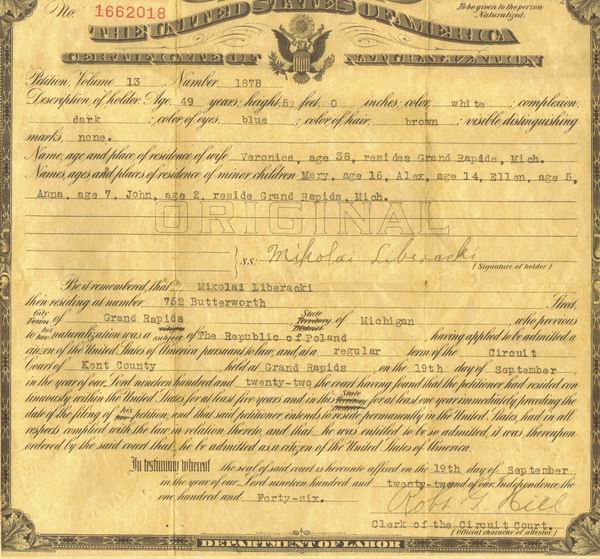 No. 1662018
To be given to the person Naturalized.
THE UNITED STATES OF AMERICA
CERTIFICATE OF NATURALIZATION
Petition, Volume 13, Number 1878
Description of holder: Age, 49 years; height, 5 feet, 0 inches; color, white; complexion,
dark; color of eyes, blue; color of hair, brown; visible distinguishing
marks, none.
Name, age and place of residence of wife Veronica, age 38, resides Grand Rapids, Mich.
Names, ages and places of residence of minor children Mary, age 16, Alex, age 14, Ellen, age 5,
Anna, age 7, John, age 2, reside Grand Rapids, Mich.
ORIGINAL
S.S. Mikolai Liberacki
(Signature of holder.)
Be it remembered, that Mikolai Liberacki
then residing at number 752 Butterworth Street,
City Town of Grand Rapids, State Territory District of Michigan, who previous
to his her naturalization was a subject of The Republic of Poland, having applied to be admitted a
citizen of the United States of America pursuant to law, and at a regular term of the Circuit
Court of Kent County held at Grand Rapids on the 19th day of September
in the year of our Lord nineteen hundred and twenty-two, the court having found that the petitioner had resided con-
tinuously within the United States for at least five years and in this State Territory District for at least one year immediately preceding the
date of the filing of his petition, and that said petitioner intends to reside permanently in the United States, had in all
respects complied with the law in relation thereto, and that he was entitled to be so admitted, it was thereupon
ordered by the said court that he be admitted as a citizen of the United States of America.
In testimony whereof the seal of said court is hereunto affixed on the 19th day of September
in the year of our Lord nineteen hundred and twenty-two and of our Independence the
one hundred and Forty-six.
Robt G Hill
Clerk of the Circuit Court.
(Official character of attestor.)
DEPARTMENT OF LABOR